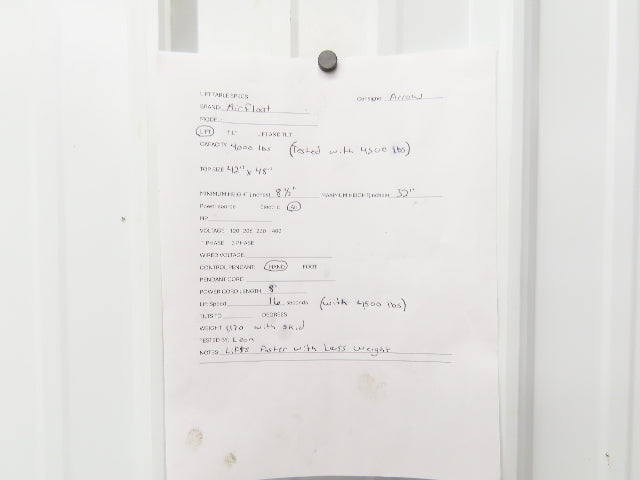 LIFT TABLE SPECS Consignor Arrow
BRAND: Airfloat
MODEL:
LIFT TILT LIFT AND TILT
CAPACITY 4000 lbs (Tested with 4500 lbs)
TOP SIZE 42" x 48"
MINIMUM HEIGHT (inches) 8 1/2" MAXIMUM HEIGHT (inches) 32"
Power source Electric Air
HP
VOLTAGE 120 208 230 460
1 PHASE 3 PHASE
WIRED VOLTAGE
CONTROL PENDANT: HAND FOOT
PENDANT CORD
POWER CORD LENGTH 8'
Lift Speed 16 seconds (with 4500 lbs)
TILTS TO DEGREES
WEIGHT with skid
TESTED BY: Leon
NOTES: Lifts Faster with Less Weight